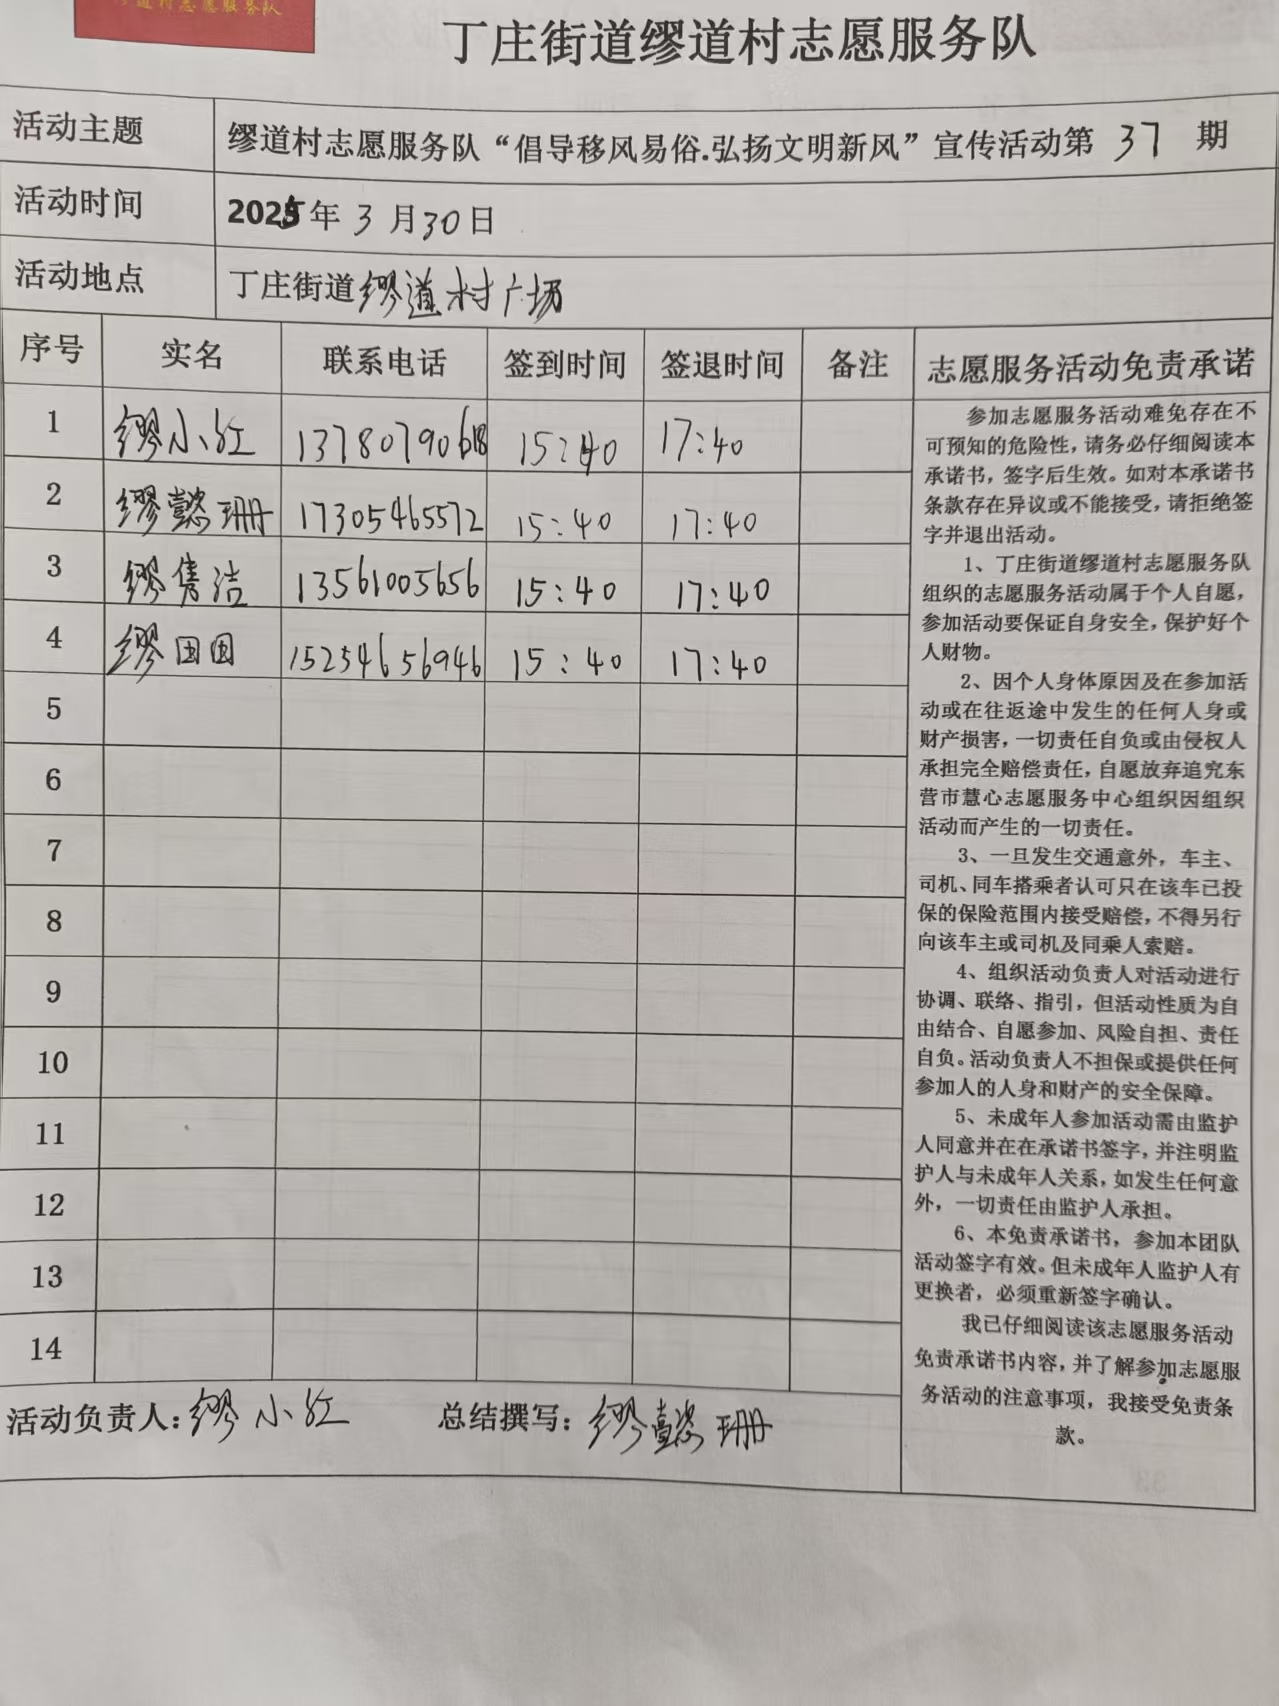 道村志愿服务队
丁庄街道缪道村志愿服务队
活动主题 缪道村志愿服务队“倡导移风易俗.弘扬文明新风”宣传活动第 37 期
活动时间 2025年 3 月 30 日
活动地点 丁庄街道缪道村广场
序号 实名 联系电话 签到时间 签退时间 备注 志愿服务活动免责承诺
1 缪小红 13780790618 15:40 17:40
2 缪懿珊 17305465572 15:40 17:40
3 缪隽洁 13561005656 15:40 17:40
4 缪田田 15254656946 15:40 17:40
5
6
7
8
9
10
11
12
13
14
参加志愿服务活动难免存在不
可预知的危险性，请务必仔细阅读本
承诺书，签字后生效。如对本承诺书
条款存在异议或不能接受，请拒绝签
字并退出活动。
1、丁庄街道缪道村志愿服务队
组织的志愿服务活动属于个人自愿，
参加活动要保证自身安全，保护好个
人财物。
2、因个人身体原因及在参加活
动或在往返途中发生的任何人身或
财产损害，一切责任自负或由侵权人
承担完全赔偿责任，自愿放弃追究东
营市慧心志愿服务中心组织因组织
活动而产生的一切责任。
3、一旦发生交通意外，车主、
司机、同车搭乘者认可只在该车已投
保的保险范围内接受赔偿，不得另行
向该车主或司机及同乘人索赔。
4、组织活动负责人对活动进行
协调、联络、指引，但活动性质为自
由结合、自愿参加、风险自担、责任
自负。活动负责人不担保或提供任何
参加人的人身和财产的安全保障。
5、未成年人参加活动需由监护
人同意并在在承诺书签字，并注明监
护人与未成年人关系，如发生任何意
外，一切责任由监护人承担。
6、本免责承诺书，参加本团队
活动签字有效。但未成年人监护人有
更换者，必须重新签字确认。
我已仔细阅读该志愿服务活动
免责承诺书内容，并了解参加志愿服
务活动的注意事项，我接受免责条
款。
活动负责人：缪小红 总结撰写：缪懿珊